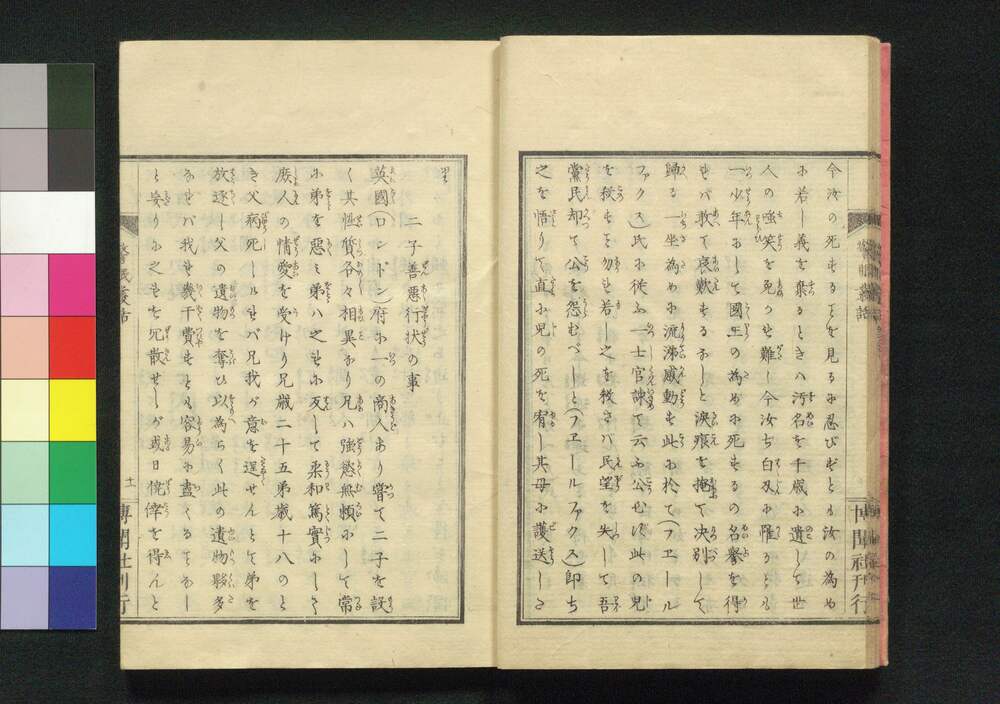 今汝の死するを見るに忍びずと𪜈汝の為め
に若し義を棄るときハ汚名を千歳に遺して世
人の嗤笑を免つせ難し今汝ぢ白刄に罹るとも
一少年にして國王の為めに死するの名誉を得
せバ敢て哀歎するなしと淚痕を掩て决別して
歸る一坐為めに流涕感動す此に於て(フヱール
ファクス)氏に従ふ一士官諫て云ふ公必ず此の兒
を殺を勿れ若し之を殺さバ民望を失して吾
黨民却て公を怨むべしと(フヱールファクス)即ち
之を悟りて直に兒の死を宥し其母に護送しさ
博聞社刊行
り
二子善悪行状の事
英國(ロンドン)府に一の商人あり甞て二子を設
く其性質各々相異なり兄ハ強慾無頼にして常
に弟を惡ミ弟ハ之れに反して柔和篤實にして
庶人の情愛を受けり兄歳二十五弟歳十八のと
き父病死しれバ兄我が意を逞せんとて弟を
放逐し父の遺物を奪ひ以為らく此の遺物夥多
なれバ我れ幾千費すとも容易に盡くるなし
と妄りに之れを冗散せしが或日僥倖を得んと
警民叢話
十一
博聞社刊行